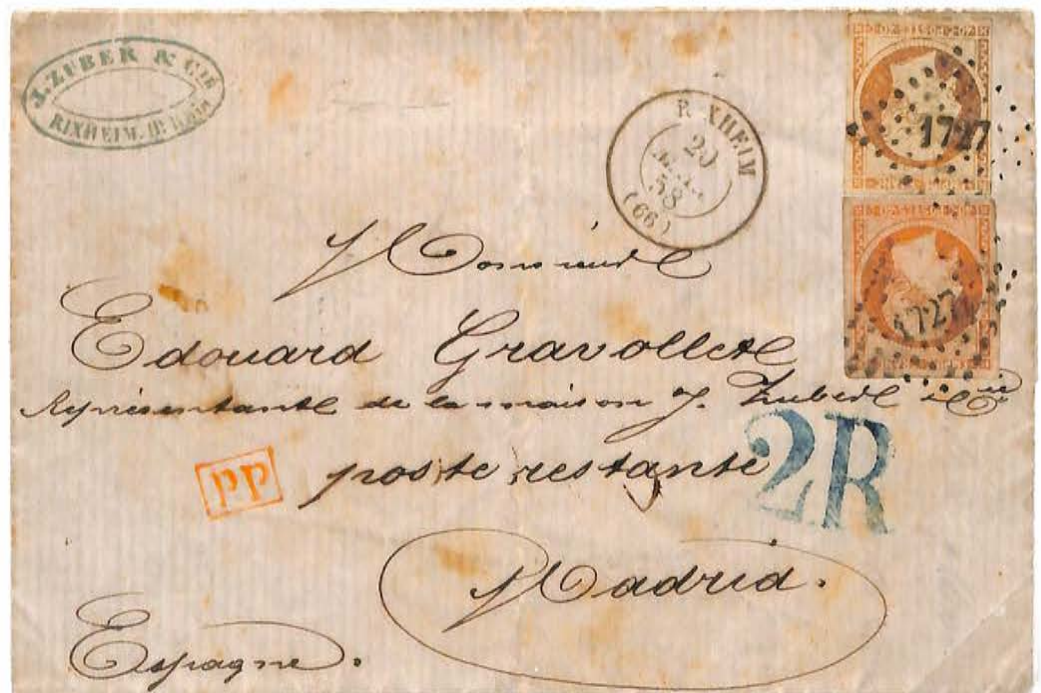 J. ZUBER & Cie
RIXHEIM. (Ht Rhin)
R XHEIM
20
58
(66)
1727
1727
Monsieur
Edouard Gravollet
Représentant de la maison J. Zuber & Cie
2R
PP
poste restante
Madrid.
Espagne.